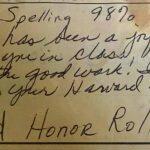 Spelling 98%
has been a joy
in class!
the good work!
your Harvard
Honor Rol